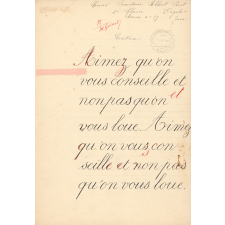 Aimez qu'on
vous conseille et
non pas qu'on et
vous loue. Aimez
qu'on vous con-
seille et non pas
qu'on vous loue.